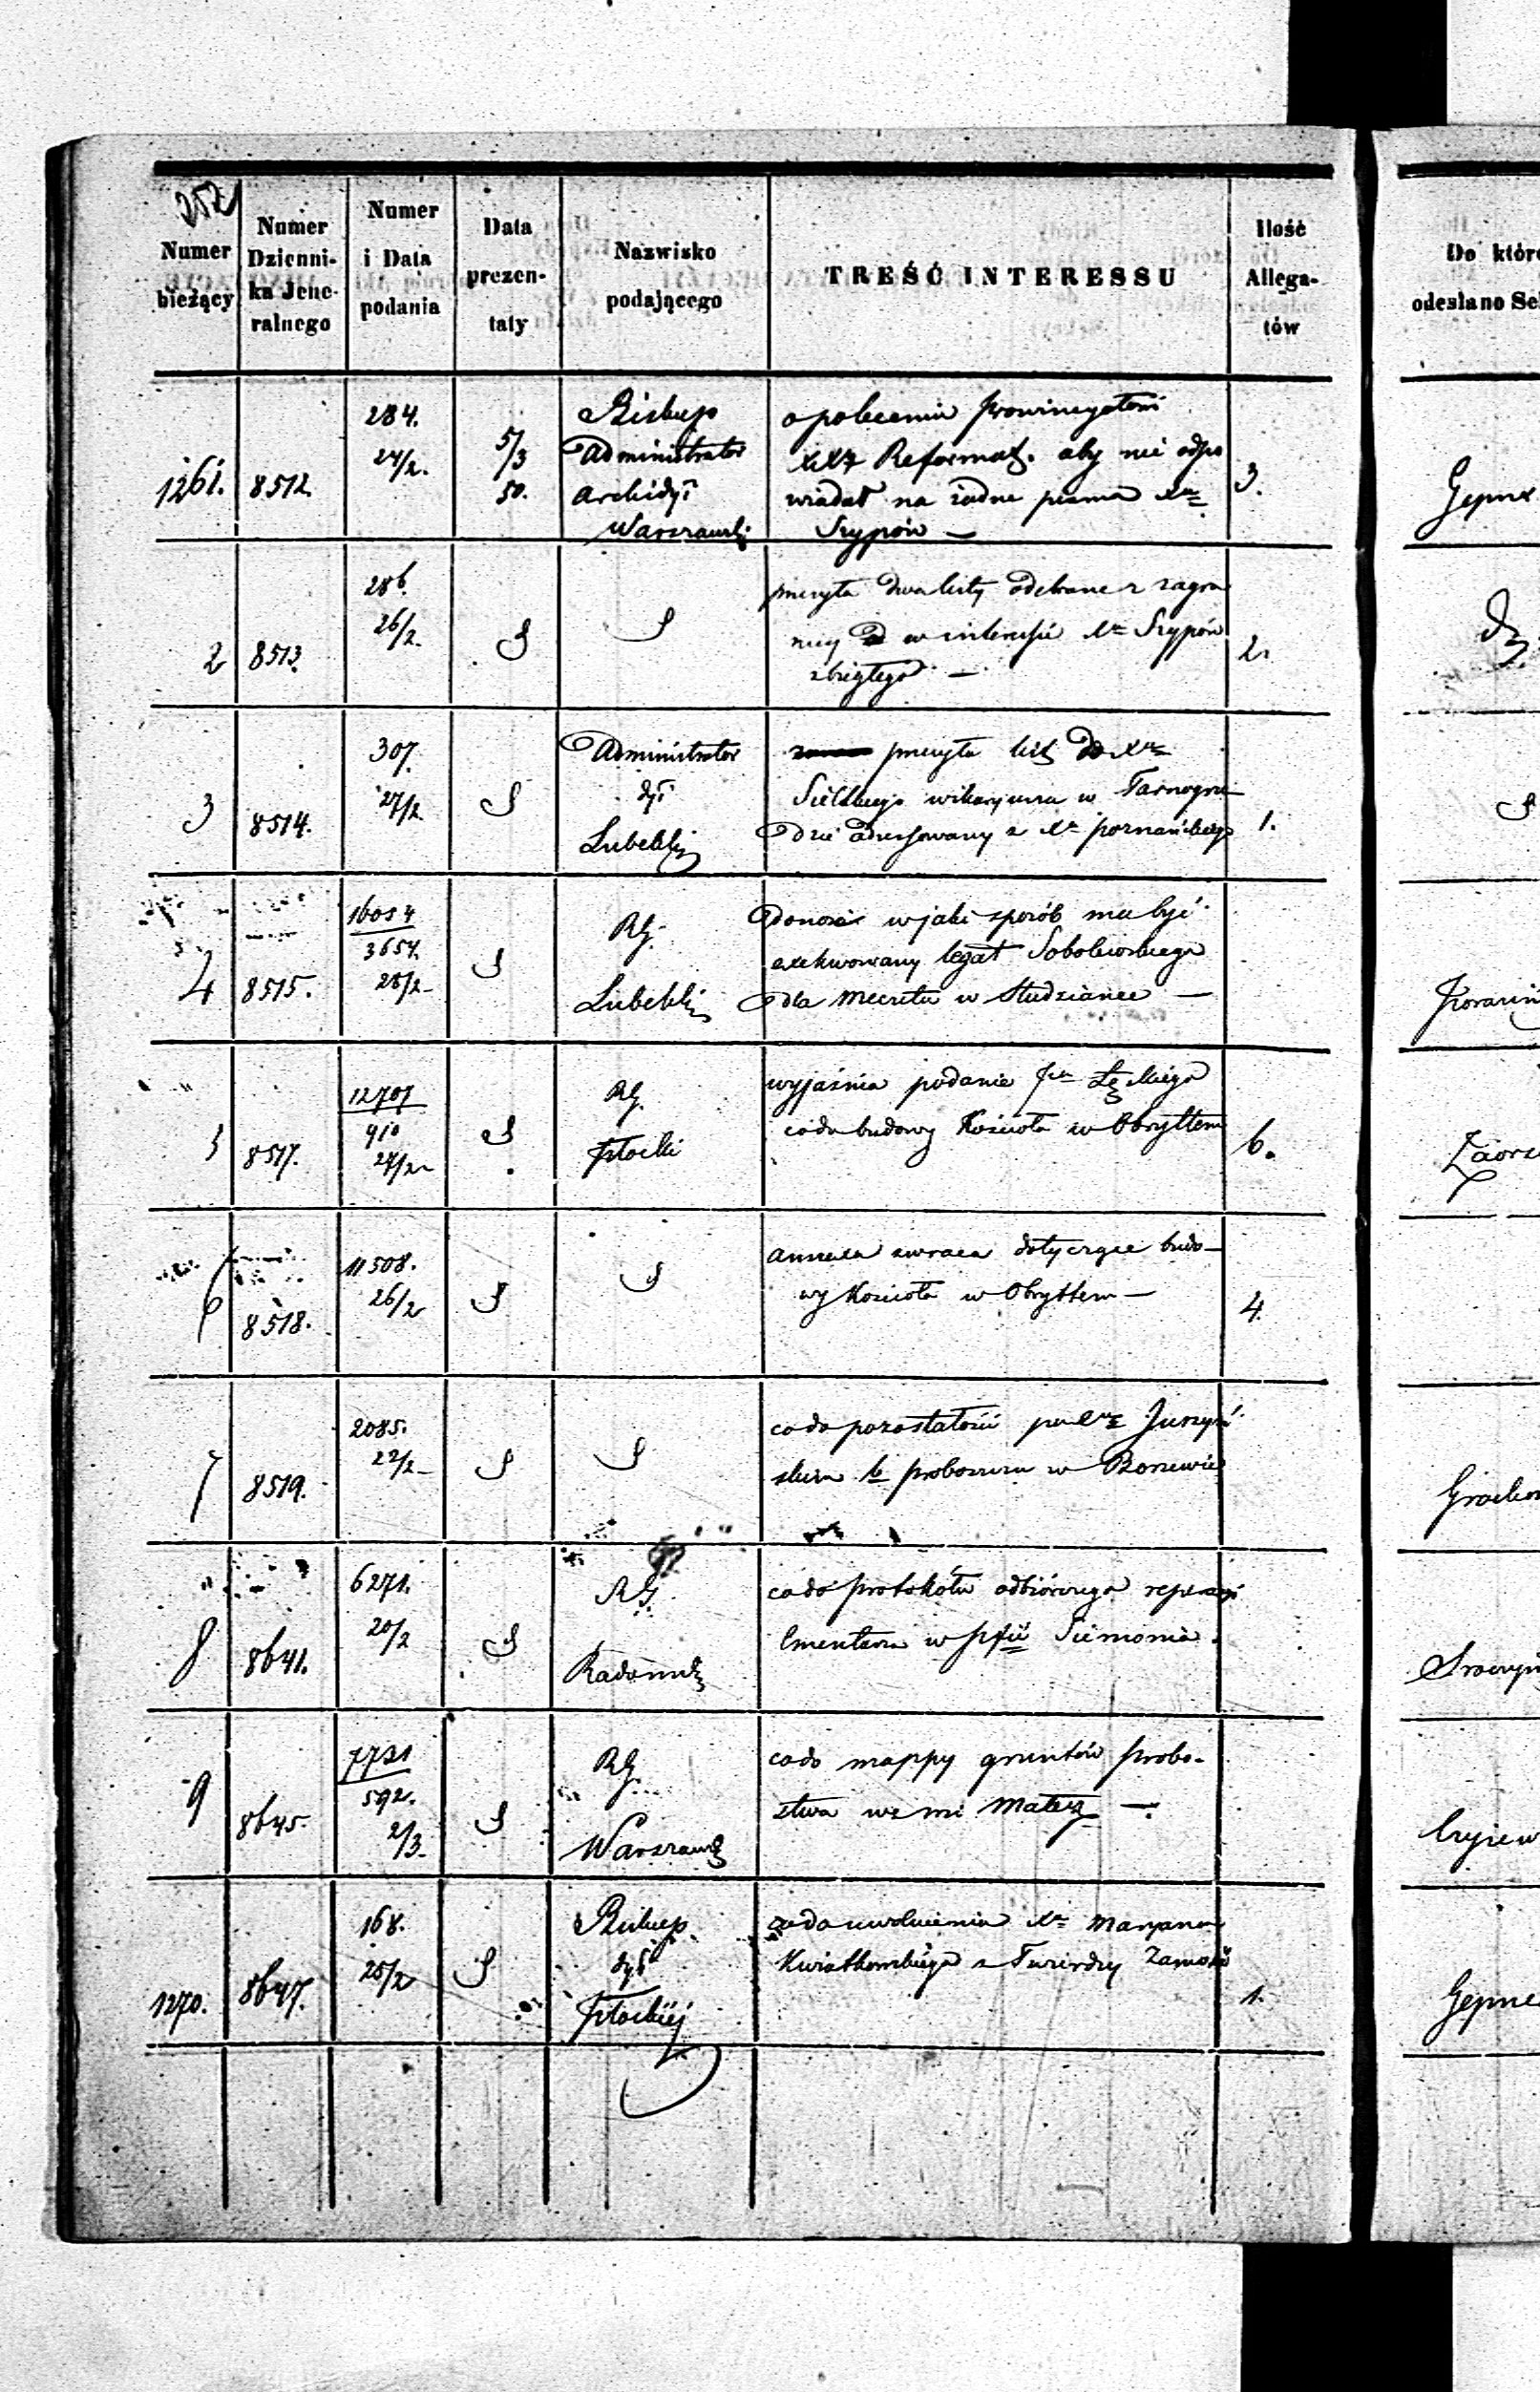 252
Numer bieżący
Numer Dzienni- ka Jene- ralnego
Numer i Data podania
Data prezen- taty
Nazwisko podającego
TREŚĆ INTERESSU
Ilość Allega- tów
Do któr
odesłano Se
1261. 8512. 284. 24/2. 5/3 50.
Biskup
Administrator
Archidyi
Warszawski
o poleceniu Prowincyałowi
XXz Reformat. aby nie odpo
wiadał na żadne pisma Xa
Szypów —
3.
2 8513. 286. 26/2.
przesyła dwa listy odebrane z zagra
nicy w interesie Xa Szypów
zbiegłego —
2.
3 8514. 307. 27/2
Administrator
dyi
Lubelski
przesyła list do Xa
Sielskiego wikaryusza w Tarnogro
dzie adressowany z Xa poznańskiego
1.
4 8515. 16054 3654. 28/2
RG.
Lubelski
Donosi w jaki sposób ma być
exekwowany legat Sobolewskiego
dla Meczetu w Studziance —
5 8517. 12707 910 27/2
RG.
Płocki
wyjaśnia podanie
co do budowy Kościoła w Obryttem
6.
6 8518. 11508. 26/2
annexa zwraca dotyczące budo-
wy Kościoła w Obryttem —
4.
7 8519. 2085. 22/2
co do pozostałości po Xz Juszyń
skim b proboszczu w
8 8641. 6271. 20/2
RG.
Radomski
co do protokółu odbiorczego repracyi
Cmentarza w Siemonia.
9 8645. 7721 592. 2/3.
RG.
Warszawski
co do mappy gruntów probo-
stwa we wsi —
1270. 8647. 168. 28/2
Biskup
dyi
Płockiej
co do uwolnienia Xa Maryana
Kwiatkowskiego z Twierdzy Zamość
1.